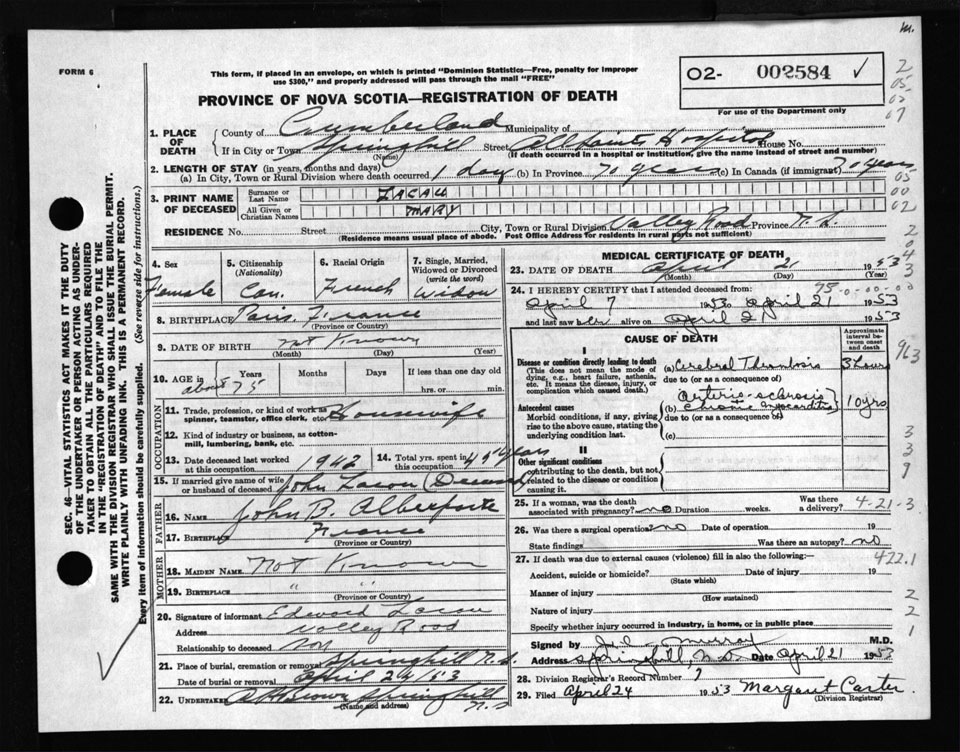 m.
FORM 6
This form, if placed in an envelope, on which is printed "Dominion Statistics—Free, penalty for improper
use $300," and properly addressed will pass through the mail "FREE"
O2- 002584 ✓
For use of the Department only
PROVINCE OF NOVA SCOTIA—REGISTRATION OF DEATH
1. PLACE OF DEATH
County of Cumberland Municipality of
If in City or Town Springhill Street All Saints Hospital House No.
(Name) (If death occurred in a hospital or institution, give the name instead of street and number)
2. LENGTH OF STAY (in years, months and days)
(a) In City, Town or Rural Division where death occurred 1 day (b) In Province 70 years (c) In Canada (if immigrant) 70 years
3. PRINT NAME OF DECEASED
Surname or Last Name LACAU
All Given or Christian Names MARY
RESIDENCE No. Street City, Town or Rural Division Valley Road Province N.S.
(Residence means usual place of abode. Post Office Address for residents in rural parts not sufficient)
4. Sex Female
5. Citizenship (Nationality) Can.
6. Racial Origin French
7. Single, Married, Widowed or Divorced (write the word) Widow
8. BIRTHPLACE Paris, France
(Province or Country)
9. DATE OF BIRTH not Known
(Month) (Day) (Year)
10. AGE in Years Months Days If less than one day old
about 75 hrs. or min.
OCCUPATION
11. Trade, profession, or kind of work as spinner, teamster, office clerk, etc. Housewife
12. Kind of industry or business, as cotton-mill, lumbering, bank, etc.
13. Date deceased last worked at this occupation 1942
14. Total yrs. spent in this occupation 49 years
15. If married give name of wife or husband of deceased John Lacau (Deceased)
FATHER
16. NAME John B.
17. BIRTHPLACE France
(Province or Country)
MOTHER
18. MAIDEN NAME Not Known
19. BIRTHPLACE " "
(Province or Country)
20. Signature of informant Edward Lacau
Address Valley Road
Relationship to deceased son
21. Place of burial, cremation or removal Springhill N.S.
Date of burial or removal April 24/53
22. UNDERTAKER A H Brown Springhill N.S
(Name and address)
MEDICAL CERTIFICATE OF DEATH
23. DATE OF DEATH April 21 1953
(Month) (Day) (Year)
24. I HEREBY CERTIFY that I attended deceased from
April 7 1953 to April 21 1953
and last saw her alive on April 21 1953
CAUSE OF DEATH
Approximate interval between onset and death
I
Disease or condition directly leading to death
(This does not mean the mode of dying, e.g., heart failure, asthenia, etc. It means the disease, injury, or complication which caused death.)
(a) Cerebral Thrombosis 3 hours
due to (or as a consequence of)
Antecedent causes
Morbid conditions, if any, giving rise to the above cause, stating the underlying condition last.
Arterio-sclerosis
(b) Chronic myocarditis 10 yrs
due to (or as a consequence of)
(c)
II
Other significant conditions
contributing to the death, but not related to the disease or condition causing it.
25. If a woman, was the death associated with pregnancy? no Duration weeks. Was there a delivery?
4-21-3
26. Was there a surgical operation? no Date of operation 19
State findings Was there an autopsy? no
27. If death was due to external causes (violence) fill in also the following:—
422.1
Accident, suicide or homicide? Date of injury 19
(State which)
Manner of injury
(How sustained)
Nature of injury
Specify whether injury occurred in industry, in home, or in public place
Signed by Murray M.D.
Address Springhill, N.S. Date April 21 1953
28. Division Registrar's Record Number 7
29. Filed April 24 1953 Margaret Carter
(Division Registrar)
SEC. 46—VITAL STATISTICS ACT MAKES IT THE DUTY
OF THE UNDERTAKER OR PERSON ACTING AS UNDER-
TAKER TO OBTAIN ALL THE PARTICULARS REQUIRED
IN THE "REGISTRATION OF DEATH" AND TO FILE THE
SAME WITH THE DIVISION REGISTRAR WHO SHALL ISSUE THE BURIAL PERMIT.
WRITE PLAINLY WITH UNFADING INK. THIS IS A PERMANENT RECORD.
Every item of information should be carefully supplied. (See reverse side for instructions.)
2
05
07
05
00
02
2
0
4
3
963
3
3
9
2
2
1